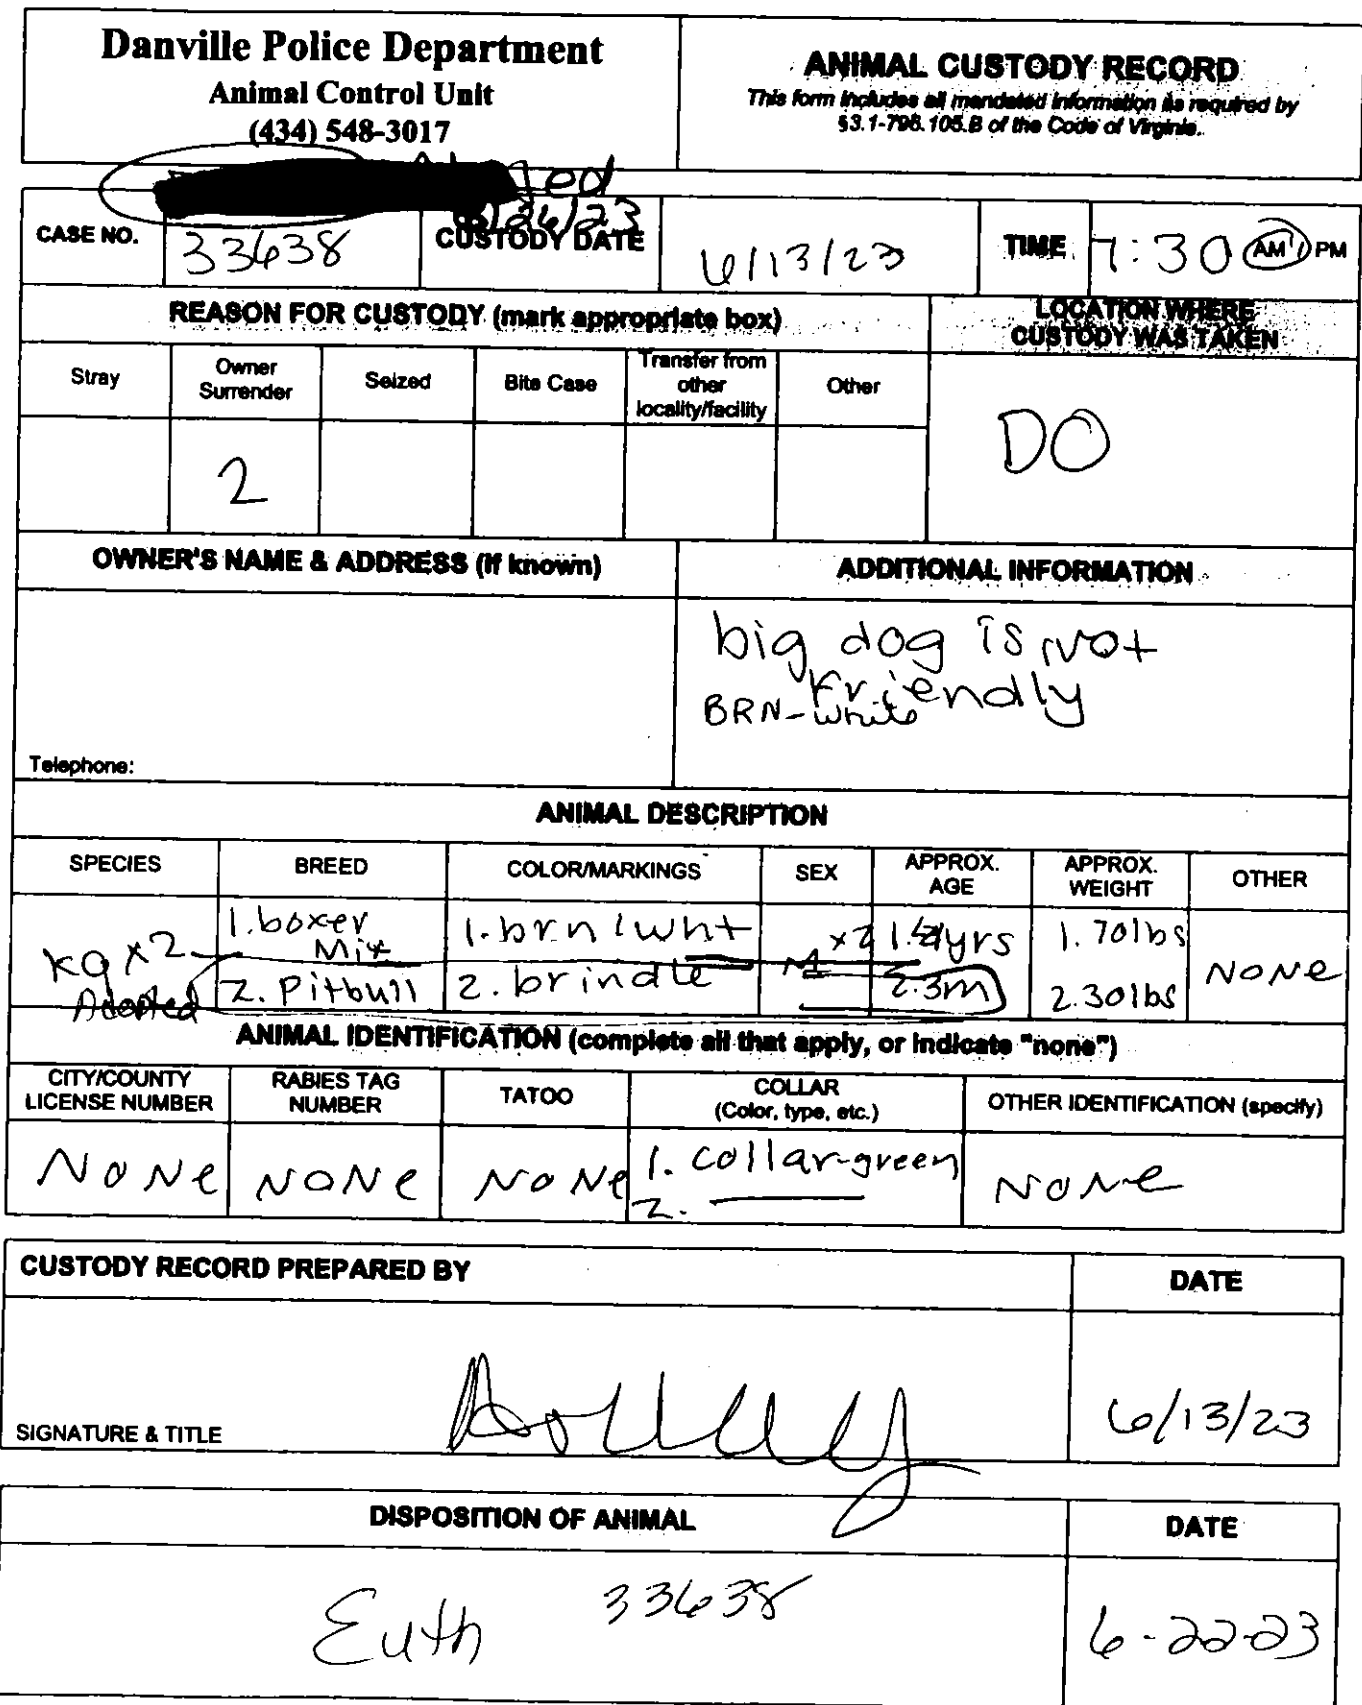 Danville Police Department
Animal Control Unit
(434) 548-3017
ANIMAL CUSTODY RECORD
This form includes all mandated information as required by
§3.1-796.105.B of the Code of Virginia.
/26/23
CASE NO.
33638
CUSTODY DATE
6/13/23
TIME
7:30 AM / PM
REASON FOR CUSTODY (mark appropriate box)
LOCATION WHERE
CUSTODY WAS TAKEN
Stray
Owner
Surrender
Seized
Bite Case
Transfer from
other
locality/facility
Other
2
DO
OWNER'S NAME & ADDRESS (if known)
ADDITIONAL INFORMATION
big dog is not
friendly
BRN-white
Telephone:
ANIMAL DESCRIPTION
SPECIES
BREED
COLOR/MARKINGS
SEX
APPROX.
AGE
APPROX.
WEIGHT
OTHER
K9 x2
Adopted
1. boxer
Mix
2. Pitbull
1. brn/wht
2. brindle
M x2
yrs
2. 3m
1. 70lbs
2. 30lbs
NONE
ANIMAL IDENTIFICATION (complete all that apply, or indicate "none")
CITY/COUNTY
LICENSE NUMBER
RABIES TAG
NUMBER
TATOO
COLLAR
(Color, type, etc.)
OTHER IDENTIFICATION (specify)
NONE
NONE
NONE
1. collar-green
2.
NONE
CUSTODY RECORD PREPARED BY
DATE
SIGNATURE & TITLE
6/13/23
DISPOSITION OF ANIMAL
DATE
Euth 33638
6-22-23